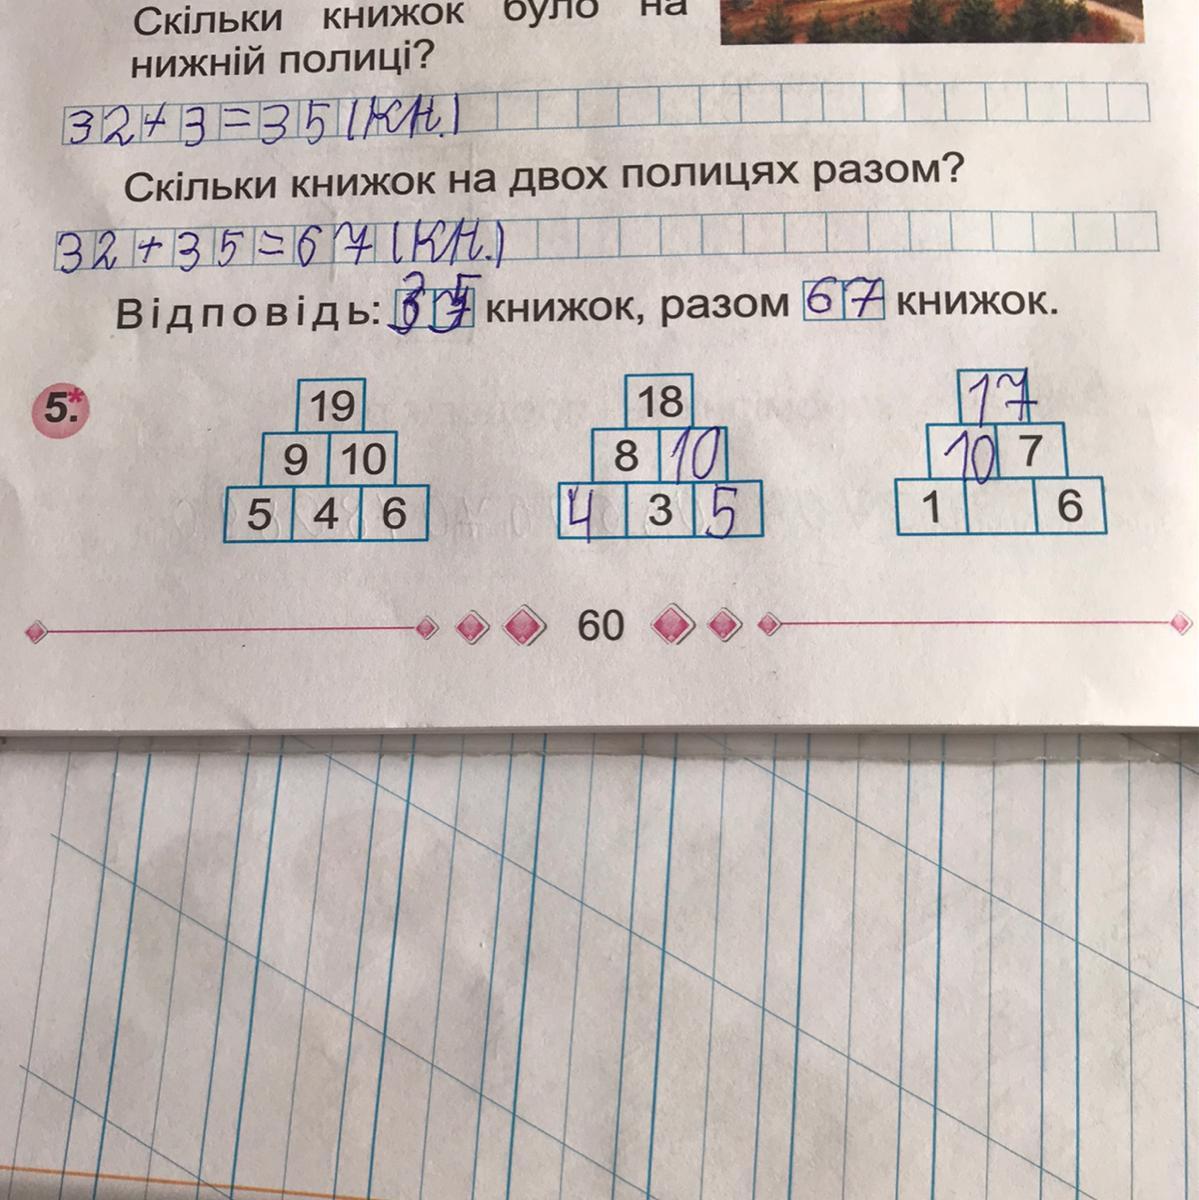 Скільки книжок було на
нижній полиці?
32+3=35(кн.)
Скільки книжок на двох полицях разом?
32+35=67(кн.)
Відповідь: 35 книжок, разом 67 книжок.
5.* 19 18 17
9 10 8 10 10 7
5 4 6 4 3 5 1 6
60